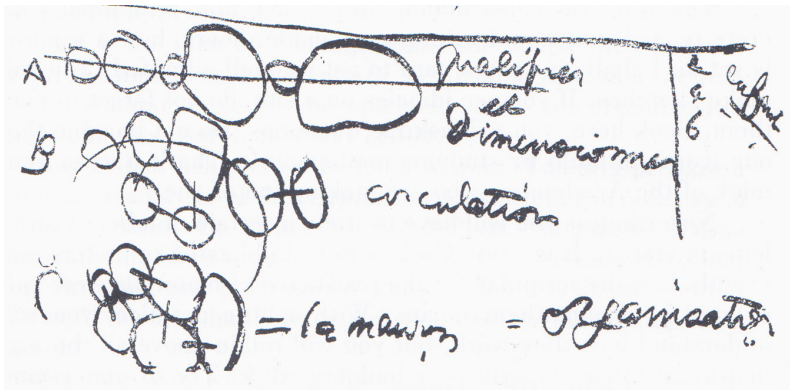 A qualifier
et
Dimensionner
B circulation
C = la maison = organisation